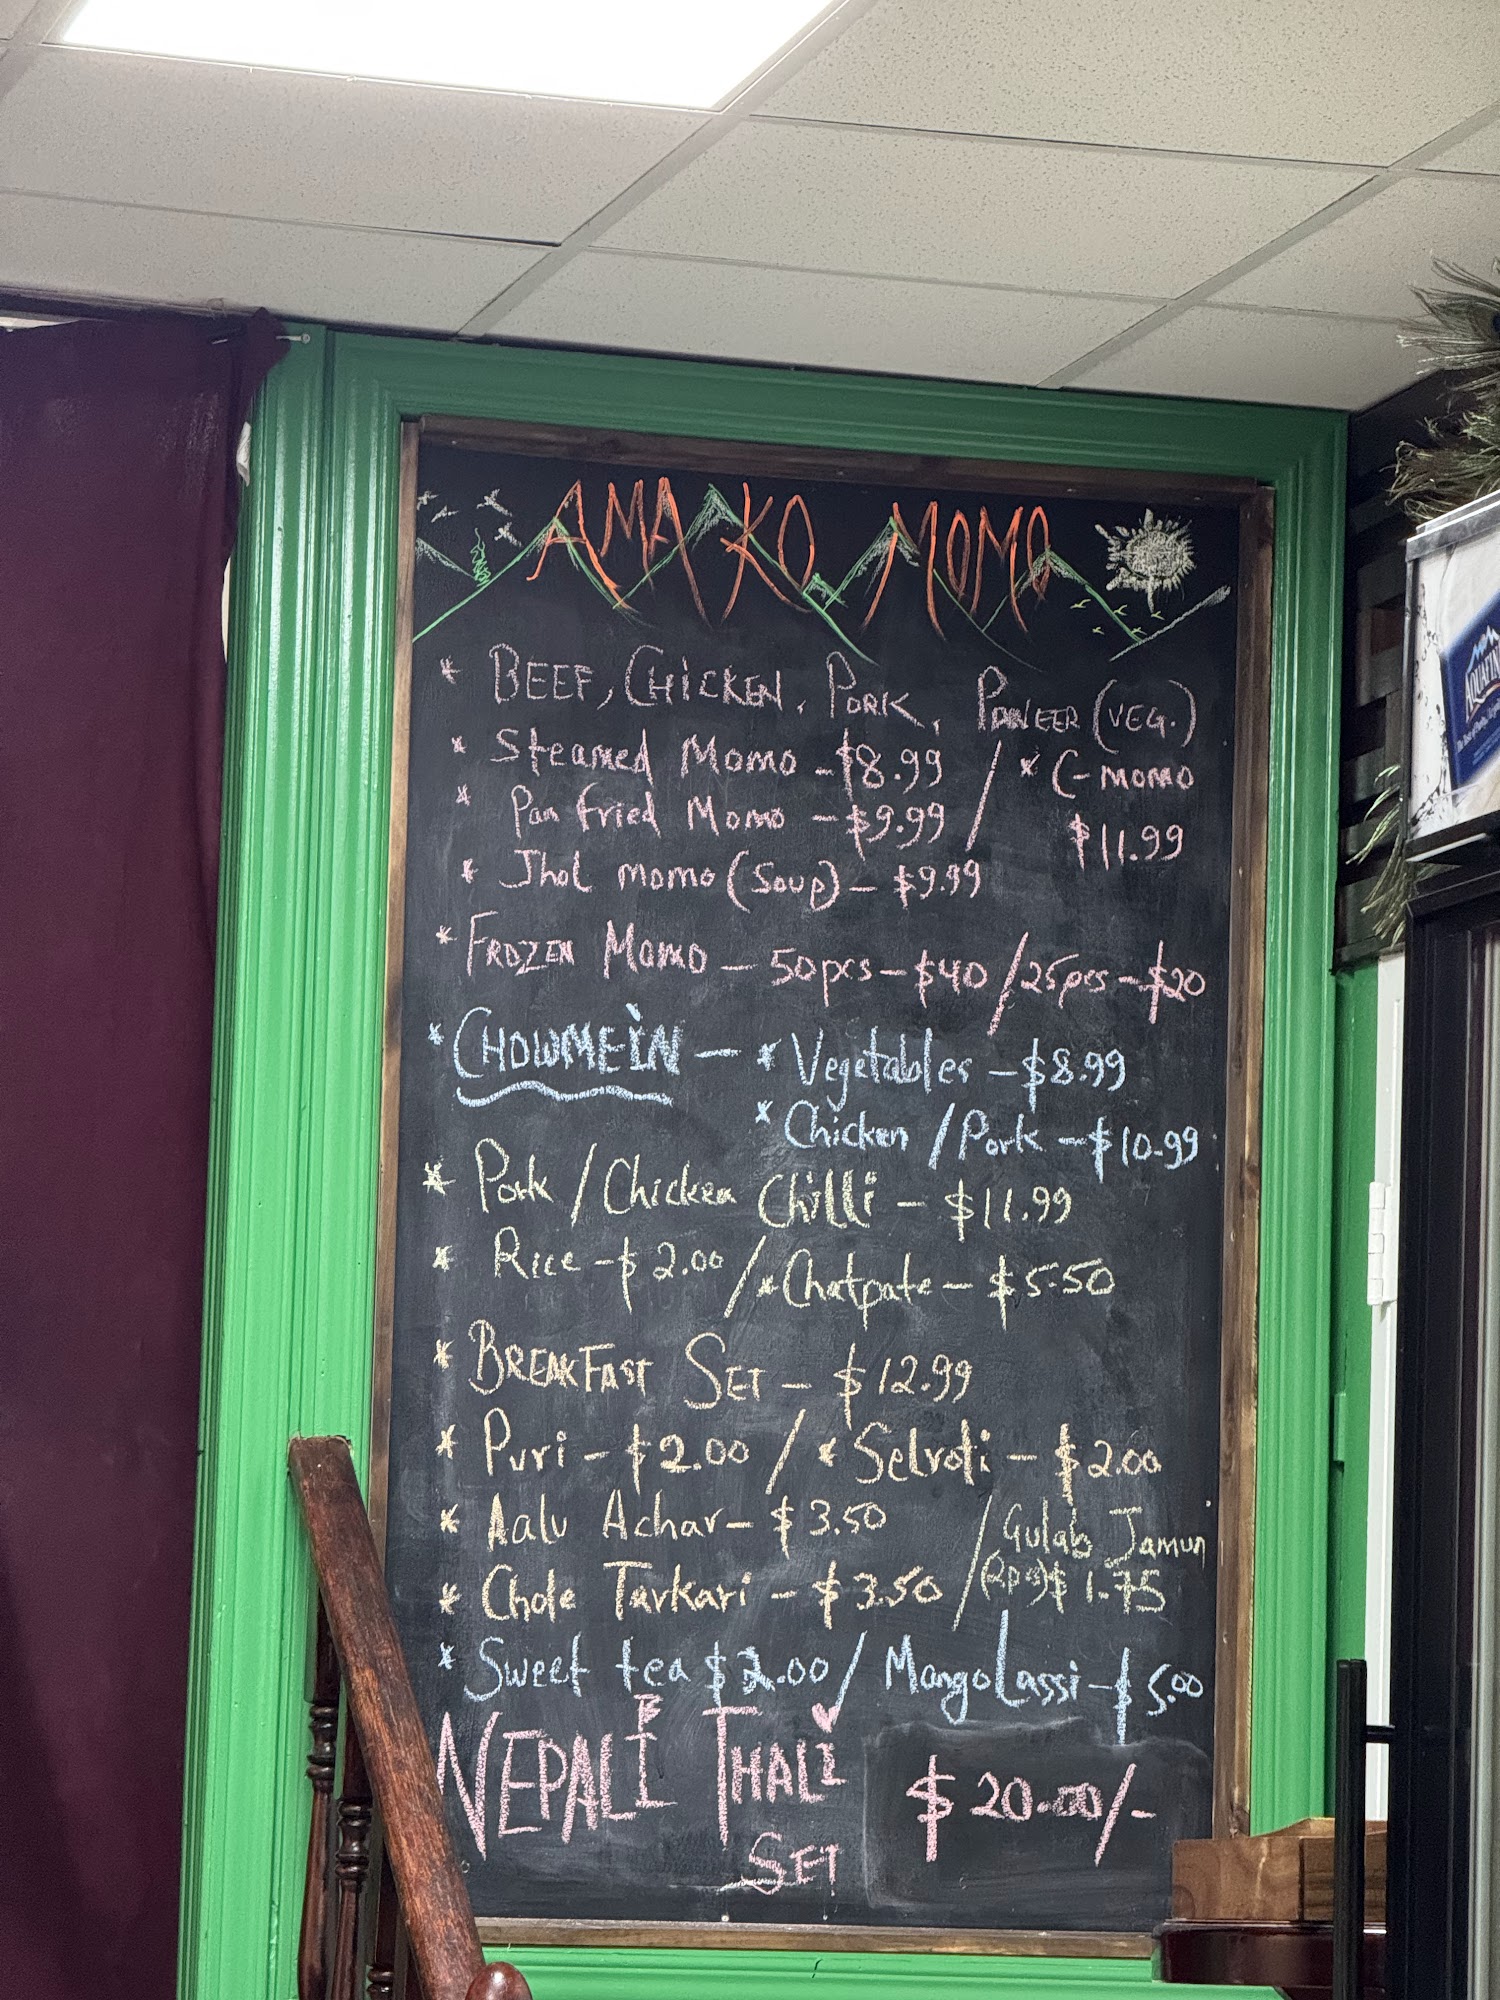 AMA KO MOMO
* BEEF, CHICKEN, PORK, PANEER (VEG.)
* Steamed Momo - $8.99 / * C-MOMO
* Pan fried Momo - $9.99 / $11.99
* Jhol momo (Soup) - $9.99
* FROZEN MOMO - 50pcs - $40 / 25pcs - $20
* CHOWMEIN - * Vegetables - $8.99
* Chicken / Pork - $10.99
* Pork / Chicken Chilli - $11.99
* Rice - $2.00 / * Chatpate - $5.50
* BREAKFAST SET - $12.99
* Puri - $2.00 / * Selroti - $2.00
* Aalu Achar - $3.50 / Gulab Jamun
* Chole Tarkari - $3.50 / (2pcs) $1.75
* Sweet tea $2.00 / Mango Lassi - $5.00
NEPALI THALI $20.00/-
SET
AQUAFINA